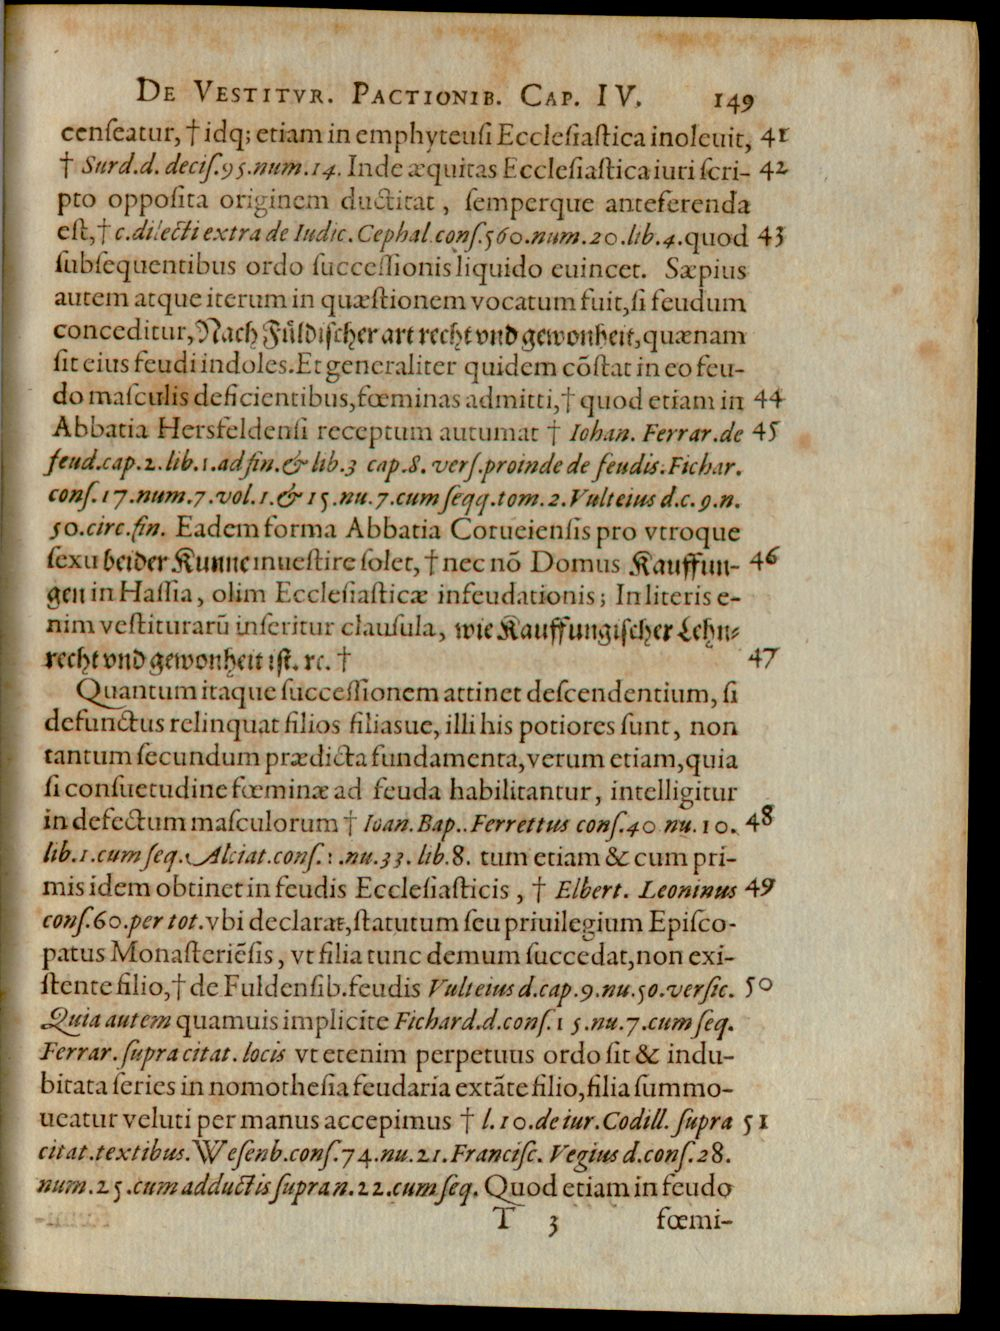 DE VESTITVR. PACTIONIB. CAP. IV. 149
cenſeatur, † idq; etiam in emphyteuſi Eccleſiaſtica inoleuit, 41
† Surd. d. deciſ. 95. num. 14. Inde æquitas Eccleſiaſtica iuri ſcri- 42
pto oppoſita originem ductitat, ſemperque anteferenda
eſt, † c. dilecti extra de Iudic. Cephal. conſ. 560. num. 20. lib. 4. quod 43
ſubſequentibus ordo ſucceſſionis liquido euincet. Sæpius
autem atque iterum in quæſtionem vocatum fuit, ſi feudum
conceditur, Nach Fuͤldiſcher art recht vnd gewonheit, quænam
ſit eius feudi indoles. Et generaliter quidem cõſtat in eo feu-
do maſculis deficientibus, fœminas admitti, † quod etiam in 44
Abbatia Hersfeldenſi receptum autumat † Iohan. Ferrar. de 45
feud. cap. 2. lib. 1. ad fin. & lib. 3 cap. 8. verſ. proinde de feudis. Fichar.
conſ. 17. num. 7. vol. 1. & 15. nu. 7. cum ſeqq. tom. 2. Vulteius d. c. 9. n.
50. circ. fin. Eadem forma Abbatia Corueienſis pro vtroque
ſexu beider Kunne inueſtire ſolet, † nec nõ Domus Kauffun- 46
gen in Haſſia, olim Eccleſiaſticæ infeudationis; In literis e-
nim veſtiturarũ inſeritur clauſula, wie Kauffungiſcher Lehn⸗
recht vnd gewonheit iſt. ꝛc. † 47
Quantum itaque ſucceſſionem attinet deſcendentium, ſi
defunctus relinquat filios filiasue, illi his potiores ſunt, non
tantum ſecundum prædicta fundamenta, verum etiam, quia
ſi conſuetudine fœminæ ad feuda habilitantur, intelligitur
in defectum maſculorum † Ioan. Bap.. Ferrettus conſ. 40 nu. 10. 48
lib. 1. cum ſeq. Alciat. conſ. 1. nu. 33. lib. 8. tum etiam & cum pri-
mis idem obtinet in feudis Eccleſiaſticis, † Elbert. Leoninus 49
conſ. 60. per tot. vbi declarat, ſtatutum ſeu priuilegium Epiſco-
patus Monaſteriẽſis, vt filia tunc demum ſuccedat, non exi-
ſtente filio, † de Fuldenſib. feudis Vulteius d. cap. 9. nu. 50. verſic. 50
Quia autem quamuis implicite Fichard. d. conſ. 15. nu. 7. cum ſeq.
Ferrar. ſupra citat. locis vt etenim perpetuus ordo ſit & indu-
bitata ſeries in nomotheſia feudaria extãte filio, filia ſummo-
ueatur veluti per manus accepimus † l. 10. de iur. Codill. ſupra 51
citat. textibus. Weſenb. conſ. 74. nu. 21. Franciſc. Vegius d. conſ. 28.
num. 25. cum adductis ſupra n. 22. cum ſeq. Quod etiam in feudo
T 3 fœmi-